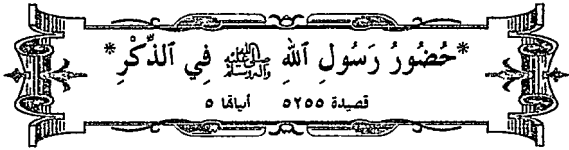 *حُضُورُ رَسُولِ اللهِ ﷺ فِي ٱلذِّكْرِ*
قصيدة ٥٢٥٥ أبياتها ٥